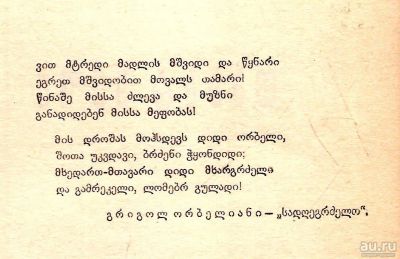 ვით მტრედი მადლის მშვიდი და წყნარი
ეგრეთ მშვიდობით მოვალს თამარი!
წინაშე მისსა ძლევა და მუზნი
განადიდებენ მისსა მეფობას!
მის დროშას მოჰსდევს დიდი ორბელი,
შოთა უკვდავი, ბრძენი ჭყონდიდი;
მხედართ-მთავარი დიდი მხარგრძელი
და გამრეკელი, ლომებრ გულადი!
გრიგოლ ორბელიანი — „სადღეგრძელო“.
au.ru